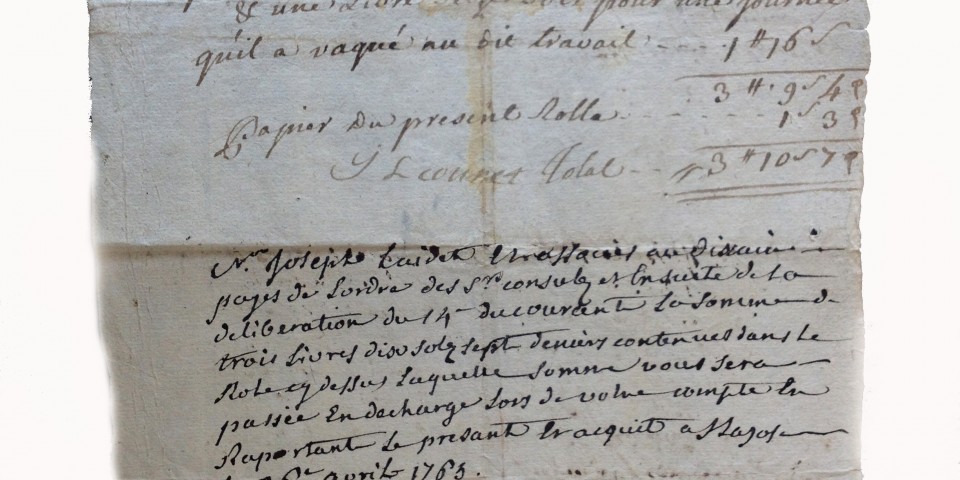 & une Livre de pour une journée
qu'il a vaqué au dit travail - - - - 1 ₶ 16 s
3 ₶ 9 s 4 d
Papier Du present Rolle - - - - - 1 s 3 d
total - - 3 ₶ 10 s 7 d
Joseph au
payes de Lordre des Srs consulz et Ensuite de la
deliberation du 14e du courant La Somme de
trois Livres dix solz sept deniers contenues dans le
Role cy dessus Laquelle Somme vous sera
passée En decharge Lors de votre compte En
Raportant le presant Et acquit a
avril 1765.